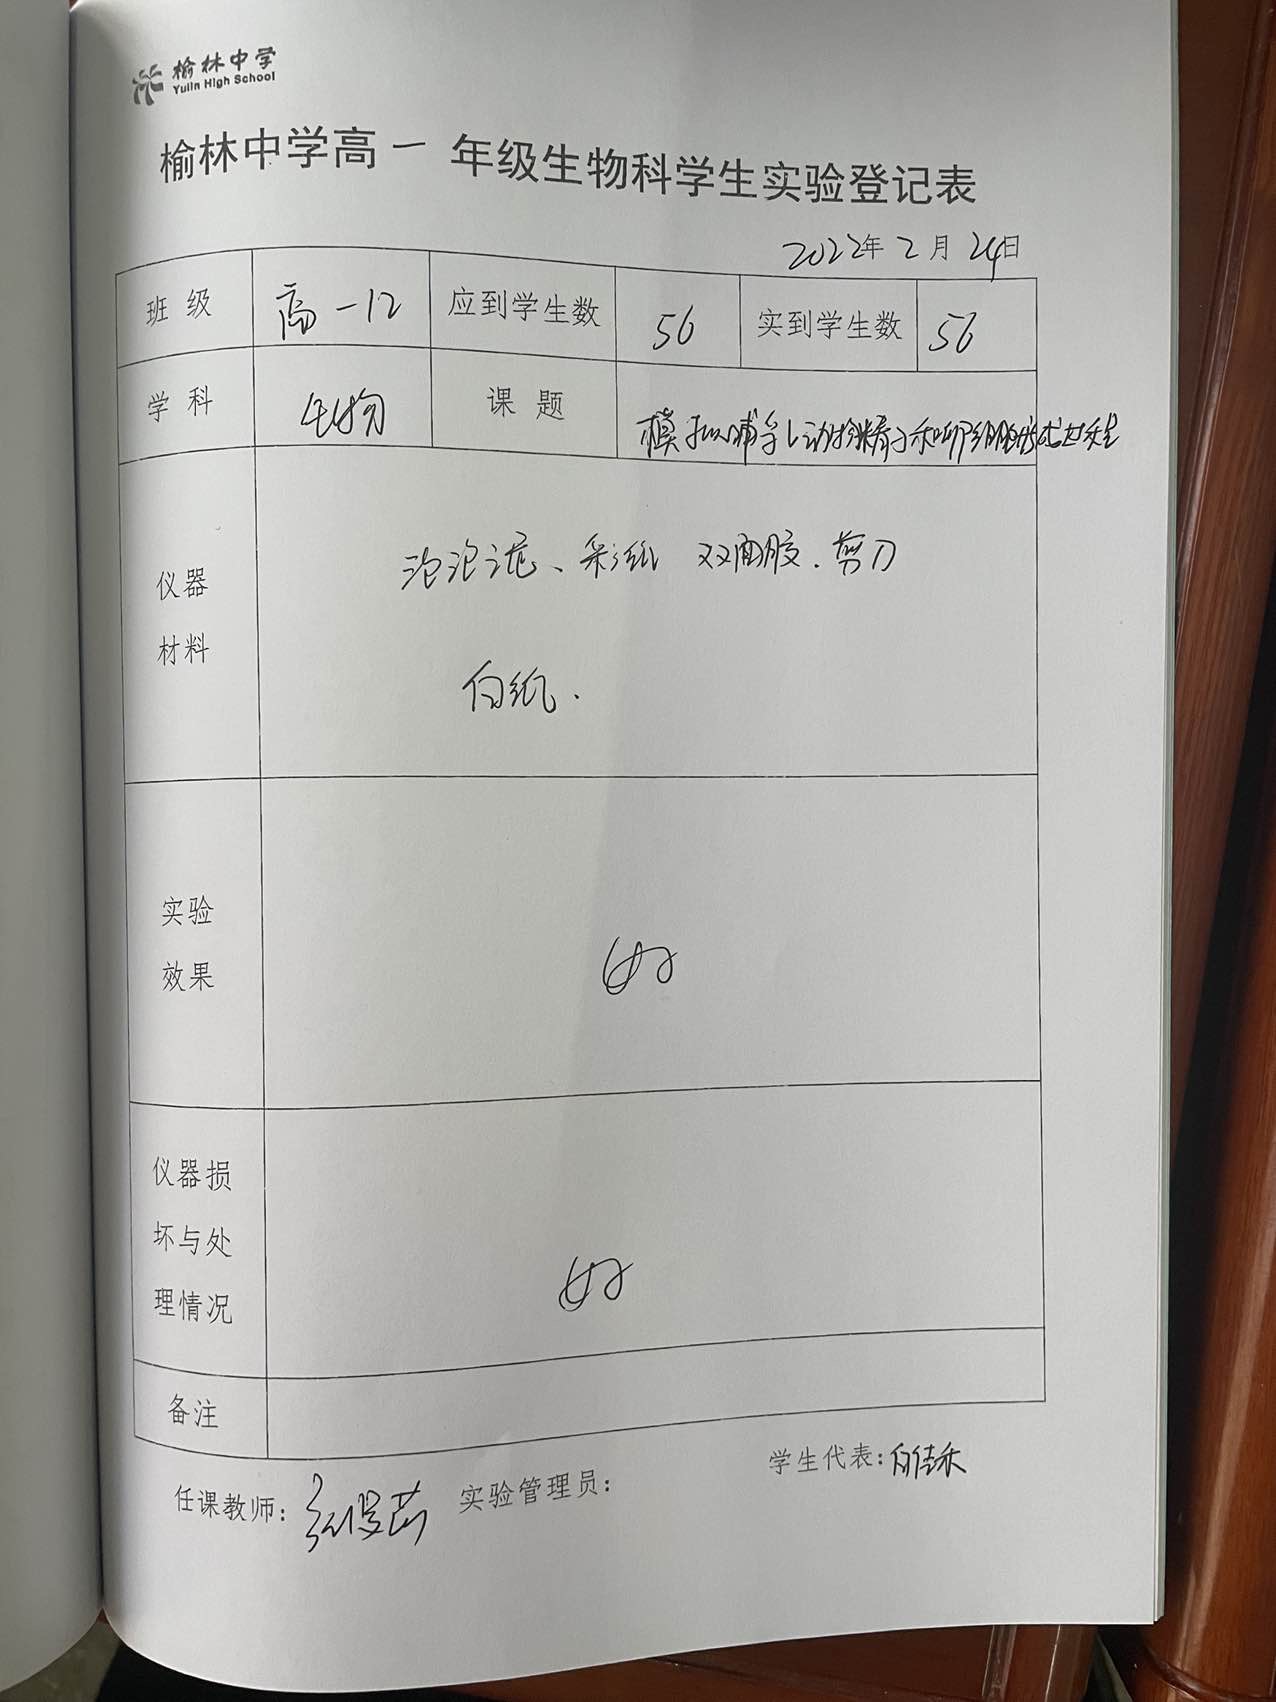 榆林中学
Yulin High School
榆林中学高一 年级生物科学生实验登记表
2022年2月24日
班 级 高一12 应到学生数 56 实到学生数 56
学 科 生物 课 题 模拟哺乳动物精子和卵细胞形成过程
仪器
材料
泡泡泥、彩纸 双面胶、剪刀
白纸.
实验
效果
好
仪器损
坏与处
理情况
好
备注
任课教师: 实验管理员:
学生代表: